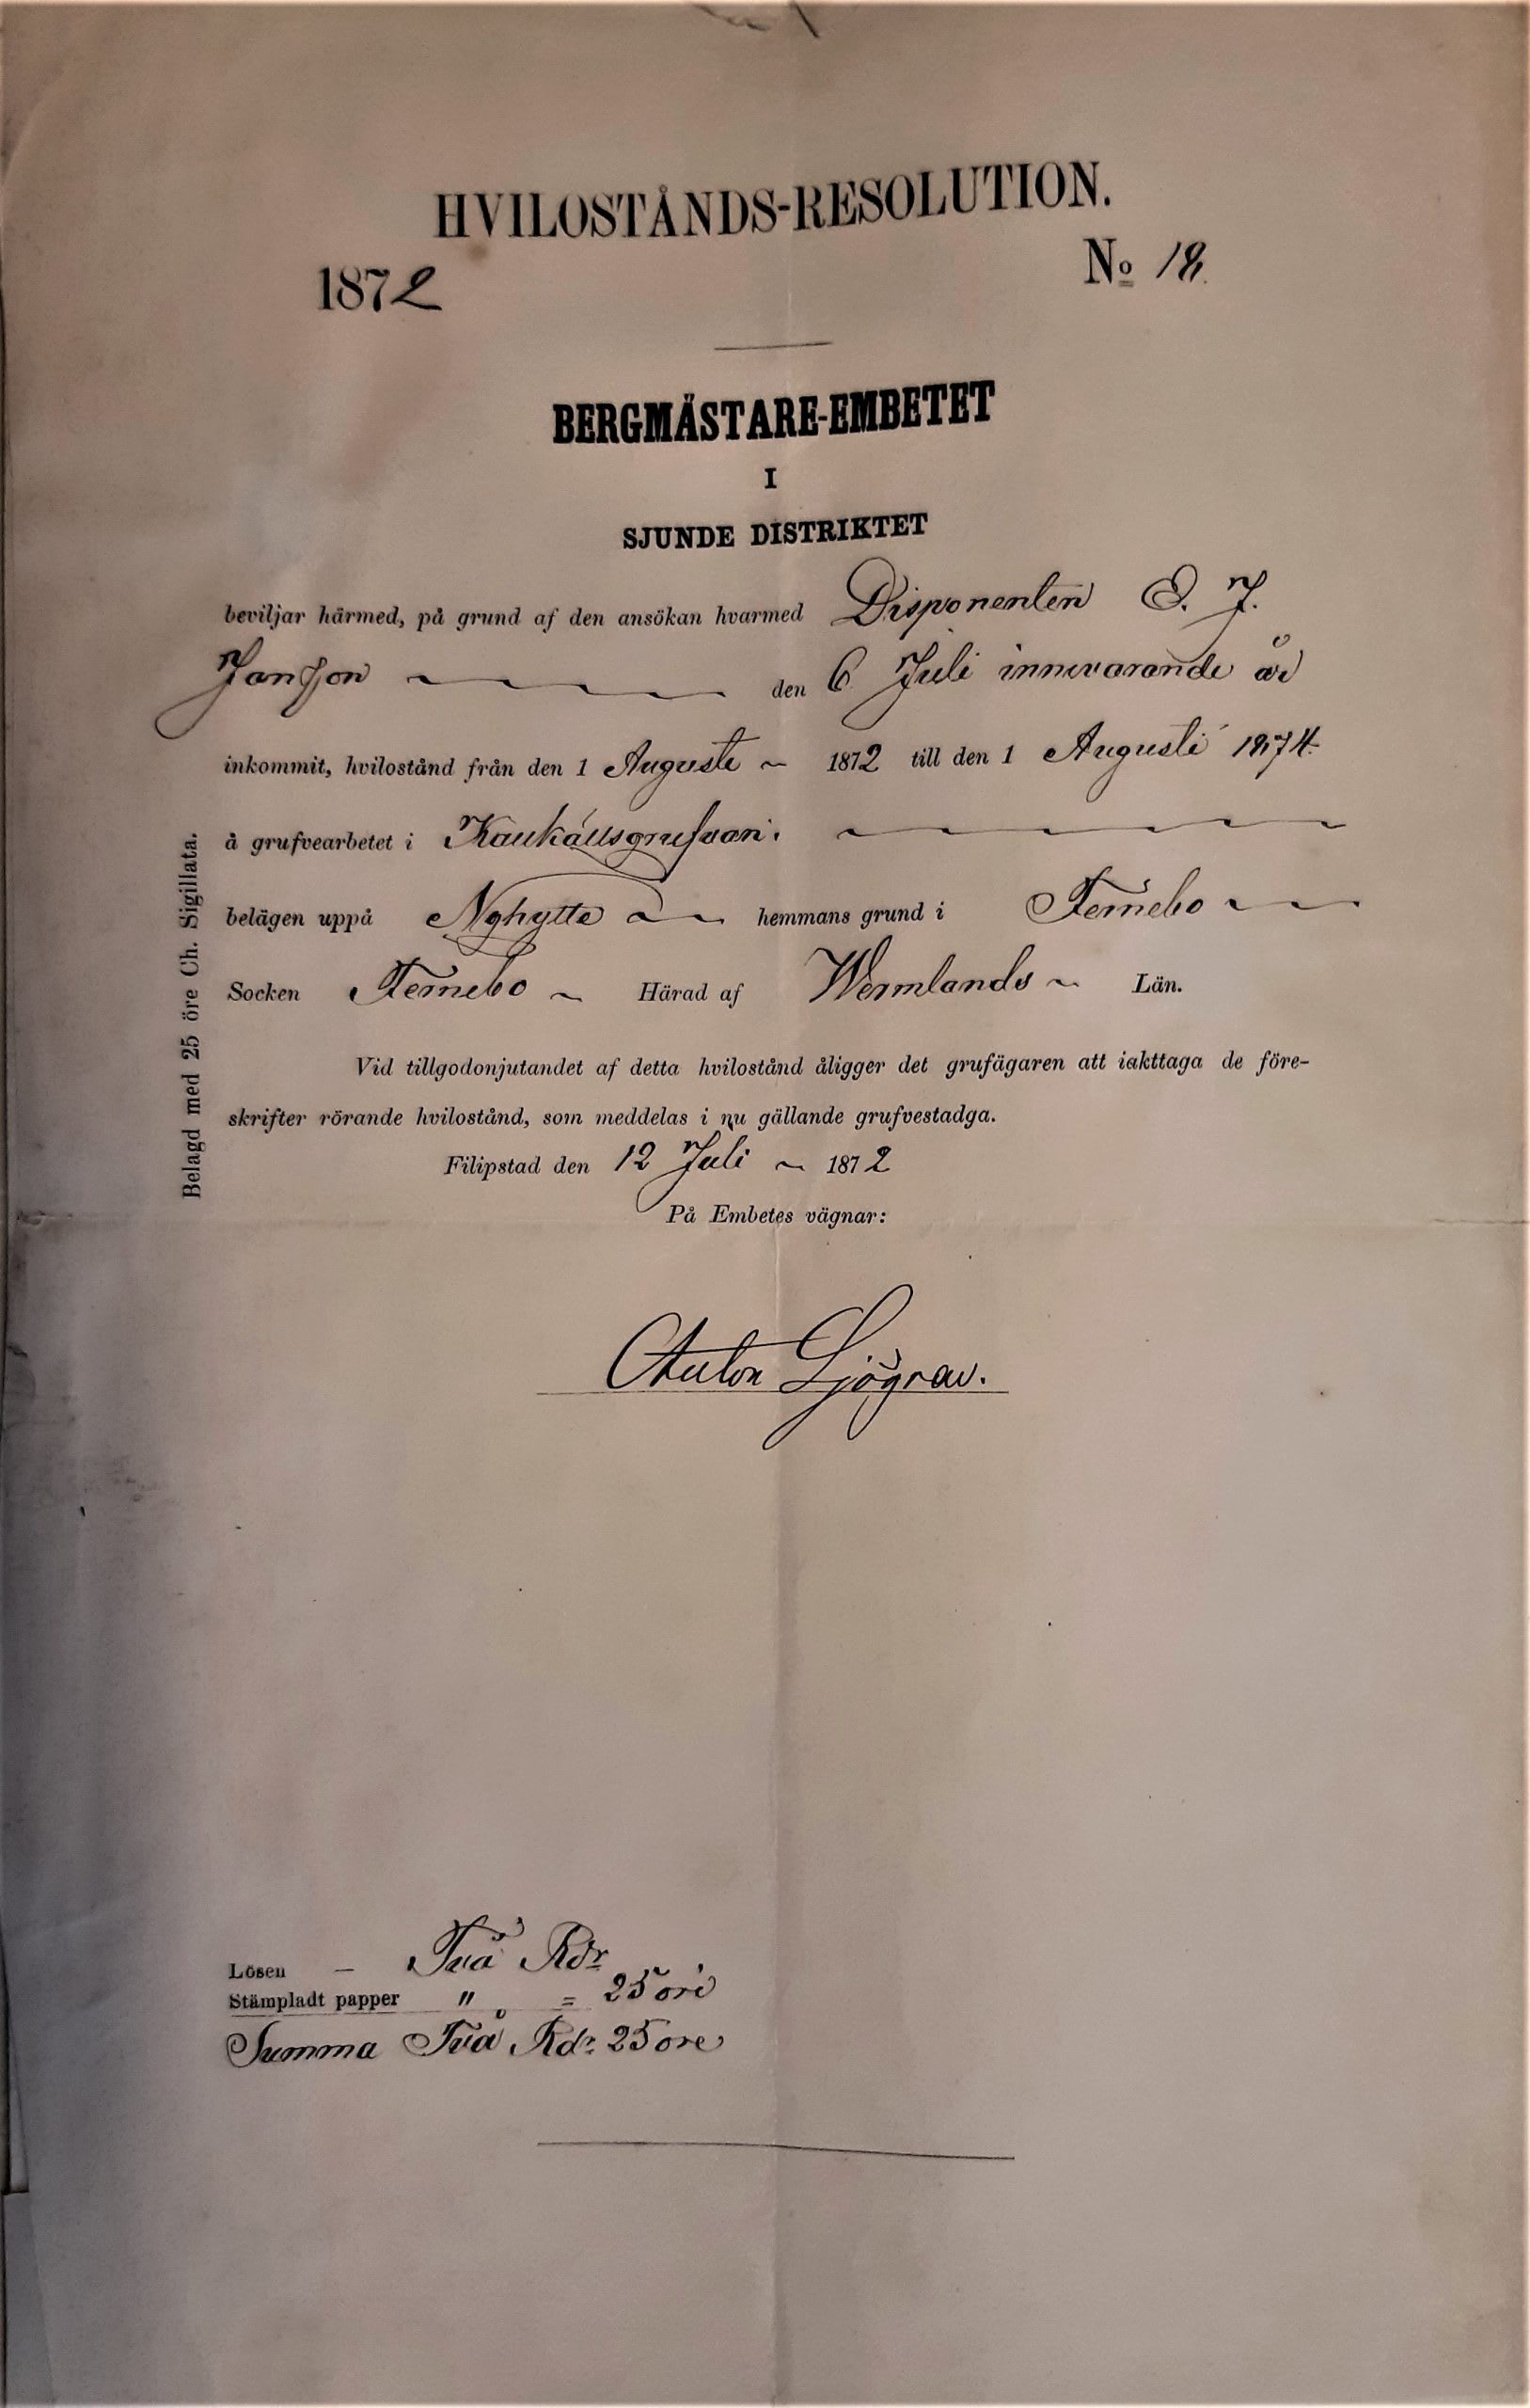 HVILOSTÅNDS-RESOLUTION.
1872 No 18.
BERGMÄSTARE-EMBETET
I
SJUNDE DISTRIKTET
beviljar härmed, på grund af den ansökan hvarmed Disponenten E. J.
Jansson den 6 Juli innevarande år
inkommit, hvilostånd från den 1 Augusti 1872 till den 1 Augusti 1874.
å grufvearbetet i
belägen uppå Nyhytte hemmans grund i Fernebo
Socken Fernebo Härad af Wermlands Län.
Vid tillgodonjutandet af detta hvilostånd åligger det grufägaren att iakttaga de före-
skrifter rörande hvilostånd, som meddelas i nu gällande grufvestadga.
Filipstad den 12 Juli 1872
På Embetes vägnar:
Anton Sjögren.
Belagd med 25 öre Ch. Sigillata.
Lösen — Två Rdr
Stämpladt papper " = 25 öre
Summa Två Rdr 25 öre